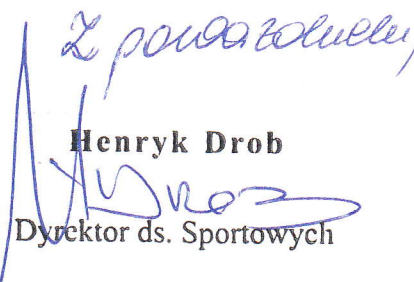 Z poważaniem,
Henryk Drob
Dyrektor ds. Sportowych